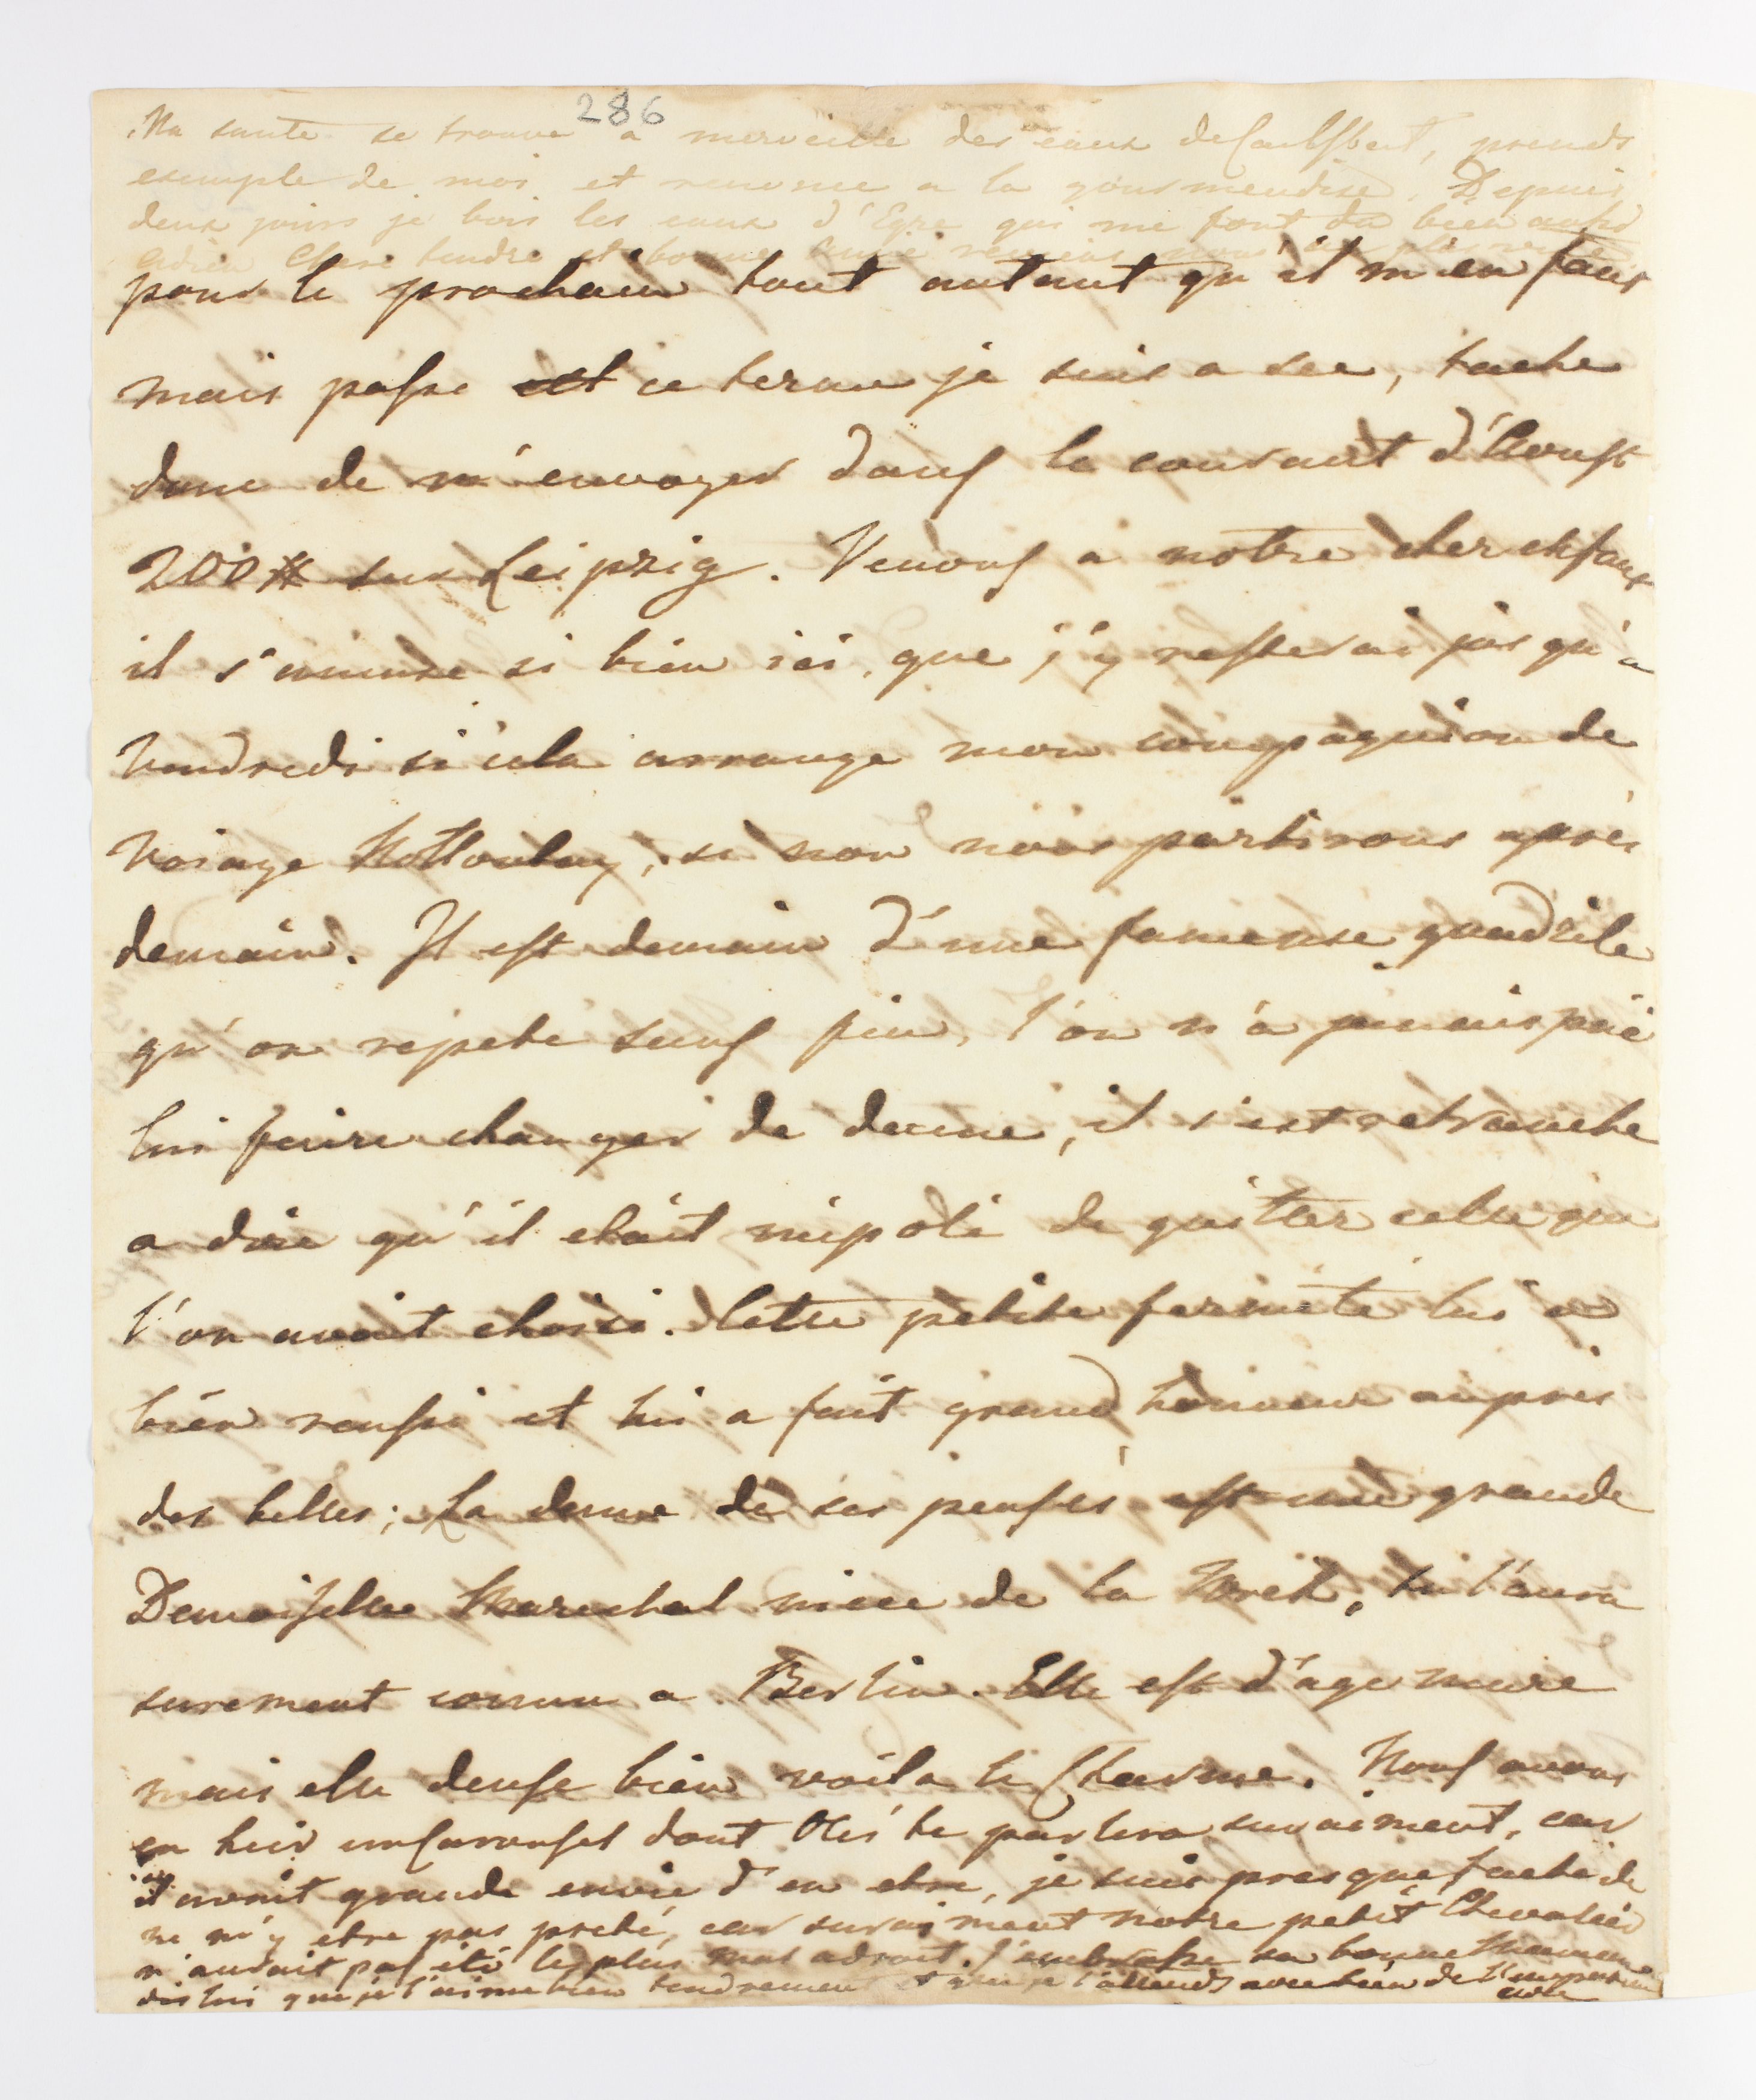 286
Ma sante se trouve a merveille des eaux de Carlsbat, prends
exemple de moi et renonce a la gourmendise. Depuis
deux jours je bois les eaux d'Egre qui me font du bien aussi
adieu chere tendre et bonne
pour le prochain tout autant qu'il m'en faut
mais passé ce terme je suis a sec, tache
donc de m'envoyer dans le courant d'Aoust
200# sur Leipzig. Venons a notre cher enfant
il s'amuse si bien ici, que j'y resterai jusqu'a
Vendredi si cela arrange mon compagnion de
Voiage si non nous partirons après
demain. Il est demain d'une fameuse quadrile
qu'on repete sans fin, l'on n'a jamais pû
lui faire changer de dame, il s'est retranché
a dire qu'il etait impoli de quitter celle que
l'on avait choisi. Cette petite fermeté lui a
bien reussi et lui a fait grand honneur aupres
des belles; La dame de ses pensés est une grande
Demoiselle Marechal niece de la tu l'aura
surement connu a Berlin. Elle est d'age mure
mais elle danse bien voila le Charme. Nous avons
eu hier un Carousel dont te parlera suraiment, car
il avait grande envie d'en etre, je suis presque faché de
ne m'y etre pas preté, car suraiment notre petit Chevalier
n'auroit pas été le plus mal adroit. J'embrasse sa bonne Maman
dis lui que je l'aime bien tendrement et que je l'attends avec bien de l'impatience